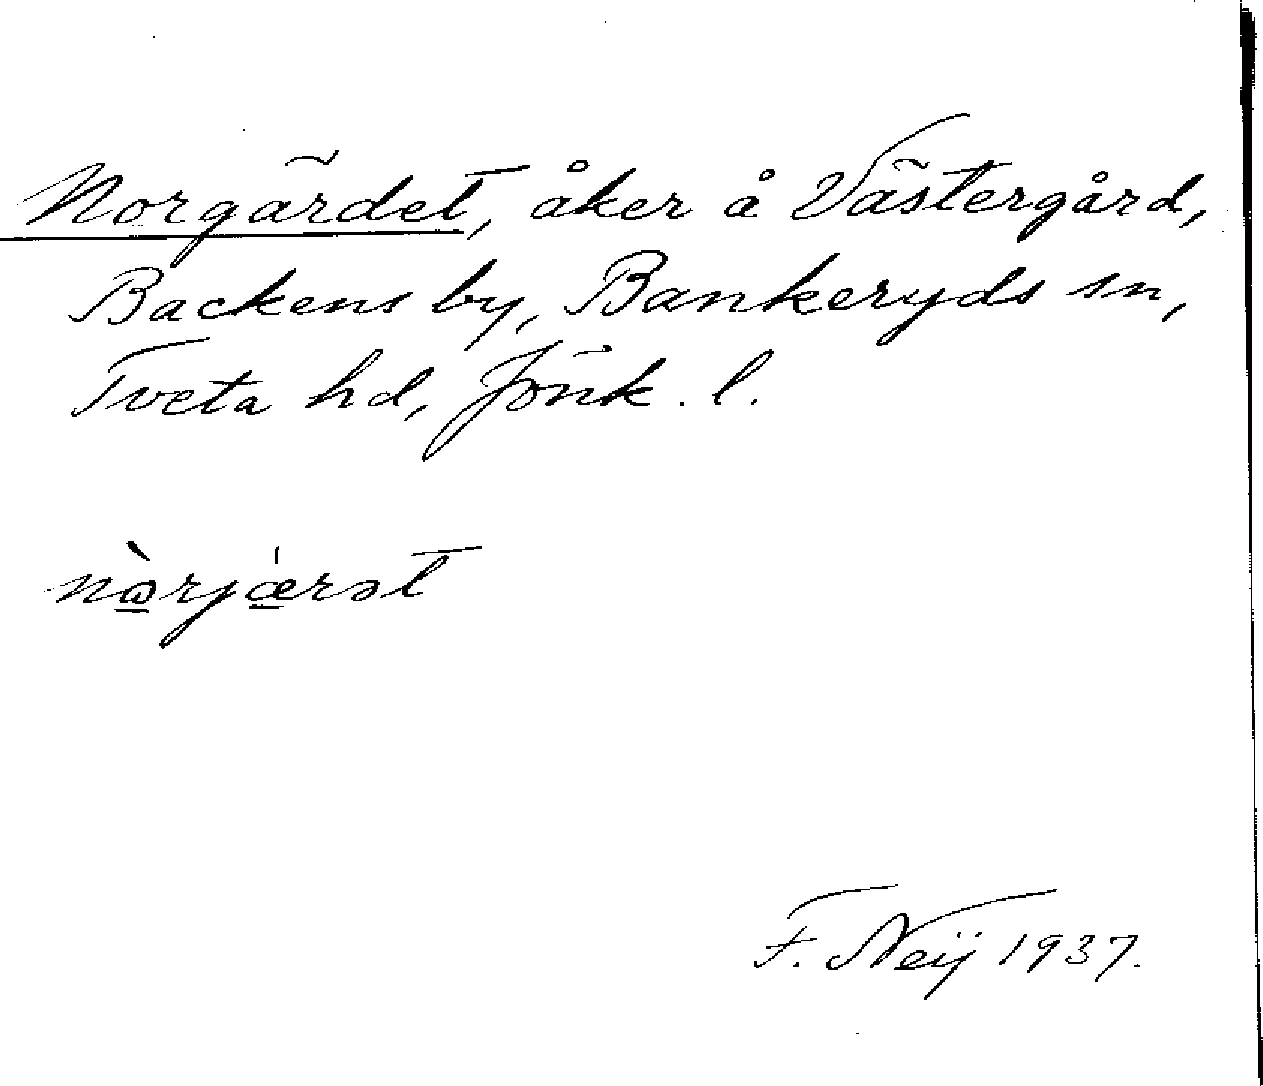 Norgärdet, åker å Västergård,
Backens by, Bankeryds sn,
Tveta hd, Jönk. l.
nə̠̀rjǽ̠rət
F. Neij 1937.